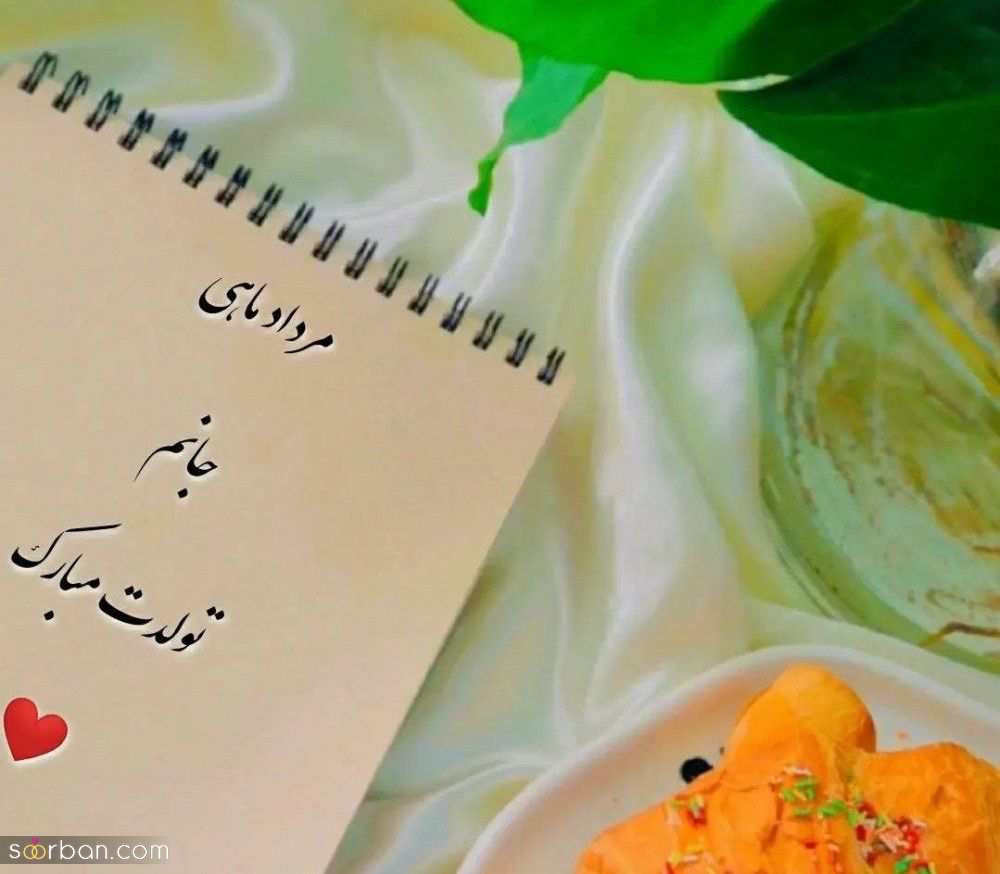 مرداد ماهی
جانم
تولدت مبارک
soorban.com